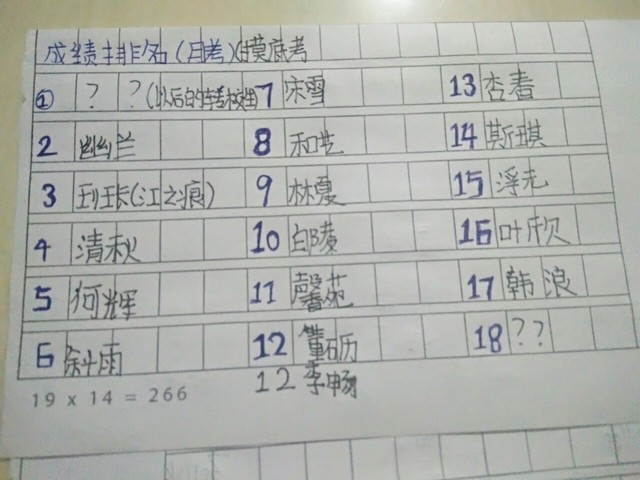 成绩排名(月考)(摸底考
① ? ?(以后的转校生) 7 宋雪 13 杏春
2 幽兰 8 和芝 14 斯琪
3 (江之痕) 9 林夏 15 浮光
4 清秋 10 白陵 16 叶秋
5 何辉 11 馨苑 17 韩浪
6 斜雨 12 董砺 18 ??
19 x 14 = 266 12 李畅